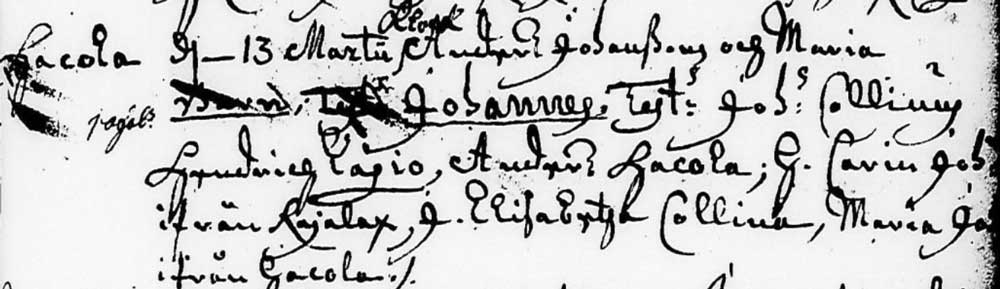 Klock
Hacola D. – 13 Martii Anders Johanss. och Maria
Barn, Johannes. Test: Joh: Collinus
Hendrich Cajio, Anders Hacola; H. Carin Joh
ifrån Kajalax, J. Elisabetha Collina, Maria Jo
ifrån Hacola ./.